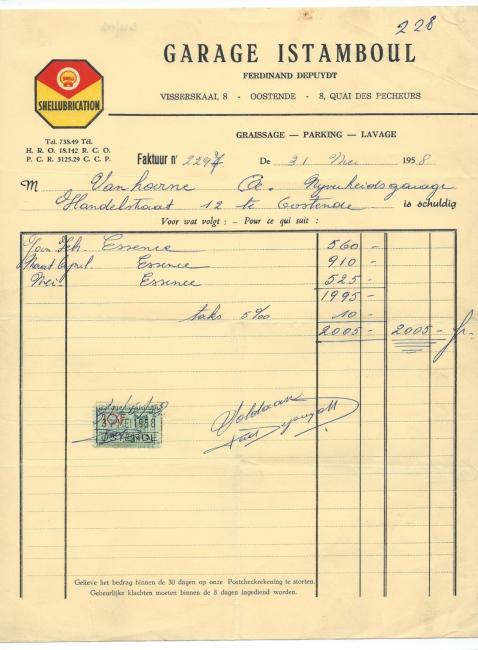 228
GARAGE ISTAMBOUL
FERDINAND DEPUYDT
VISSERSKAAI, 8 - OOSTENDE - 8, QUAI DES PECHEURS
SHELL
SHELLUBRICATION
Tel. 738.49 Tél.
H. R. O. 18.142 R. C. O.
P. C. R. 3125.29 C. C. P.
GRAISSAGE — PARKING — LAVAGE
Faktuur n° 2297 De 31 Mei 1958
M Vanhoorne Nyverheidsgarage
Handelstraat 12 te Oostende is schuldig
Voor wat volgt : – Pour ce qui suit :
Jan. Feb. Essence 560 -
Maart April Essence 910 -
Mei Essence 525 -
1995 -
taks 5‰ 10 -
2005 - 2005 - fr.
10F
1958
OOSTENDE
Voldaan
Gelieve het bedrag binnen de 30 dagen op onze Postcheckrekening te storten.
Gebeurlijke klachten moeten binnen de 8 dagen ingediend worden.